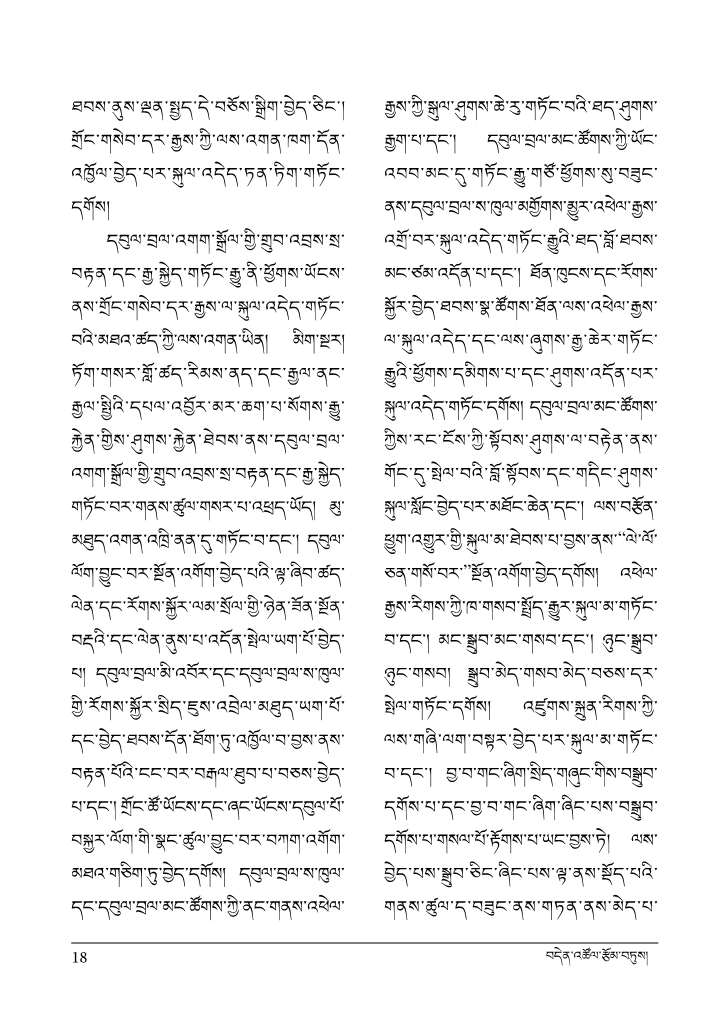 ཐབས་ནུས་ལྡན་སྤྱད་དེ་བཅོས་སྒྲིག་བྱེད་ཅིང་།
གྲོང་གསེབ་དར་རྒྱས་ཀྱི་ལས་འགན་ཁག་དོན་
འཁྱོལ་བྱེད་པར་སྐུལ་འདེད་ཏན་ཏིག་གཏོང་
དགོས།
དབུལ་བྲལ་འགག་སྒྲོལ་གྱི་གྲུབ་འབྲས་སྲ་
བརྟན་དང་རྒྱ་སྐྱེད་གཏོང་རྒྱུ་ནི་ཕྱོགས་ཡོངས་
ནས་གྲོང་གསེབ་དར་རྒྱས་ལ་སྐུལ་འདེད་གཏོང་
བའི་མཐའ་ཚད་ཀྱི་ལས་འགན་ཡིན། མིག་སྔར།
ཏོག་གསར་གློ་ཚད་རིམས་ནད་དང་རྒྱལ་ནང་
རྒྱལ་སྤྱིའི་དཔལ་འབྱོར་མར་ཆག་པ་སོགས་རྒྱུ་
རྐྱེན་གྱིས་ཤུགས་རྐྱེན་ཐེབས་ནས་དབུལ་བྲལ་
འགག་སྒྲོལ་གྱི་གྲུབ་འབྲས་སྲ་བརྟན་དང་རྒྱ་སྐྱེད་
གཏོང་བར་གནས་ཚུལ་གསར་པ་འཕྲད་ཡོད། མུ་
མཐུད་འགན་འཁྲི་ནན་དུ་གཏོང་བ་དང་། དབུལ་
ལོག་བྱུང་བར་སྔོན་འགོག་བྱེད་པའི་ལྟ་ཞིབ་ཚད་
ལེན་དང་རོགས་སྐྱོར་ལམ་སྲོལ་གྱི་ཉེན་ཟོན་སྔོན་
བརྡའི་དང་ལེན་ནུས་པ་འདོན་སྤེལ་ཡག་པོ་བྱེད་
པ། དབུལ་བྲལ་མི་འབོར་དང་དབུལ་བྲལ་ས་ཁུལ་
གྱི་རོགས་སྐྱོར་སྲིད་ཇུས་འབྲེལ་མཐུད་ཡག་པོ་
དང་བྱེད་ཐབས་དོན་ཐོག་ཏུ་འཁྱོལ་བ་བྱས་ནས་
བརྟན་པོའི་ངང་བར་བརྒལ་ཐུབ་པ་བཅས་བྱེད་
པ་དང་། གྲོང་ཚོ་ཡོངས་དང་ཞང་ཡོངས་དབུལ་པོ་
བསྐྱར་ལོག་གི་སྣང་ཚུལ་བྱུང་བར་བཀག་འགོག་
མཐའ་གཅིག་ཏུ་བྱེད་དགོས། དབུལ་བྲལ་ས་ཁུལ་
དང་དབུལ་བྲལ་མང་ཚོགས་ཀྱི་ནང་གནས་འཕེལ་
རྒྱས་ཀྱི་སྒུལ་ཤུགས་ཆེ་རུ་གཏོང་བའི་ཐད་ཤུགས་
རྒྱག་པ་དང་། དབུལ་བྲལ་མང་ཚོགས་ཀྱི་ཡོང་
འབབ་མང་དུ་གཏོང་རྒྱུ་གཙོ་ཕྱོགས་སུ་བཟུང་
ནས་དབུལ་བྲལ་ས་ཁུལ་མགྱོགས་མྱུར་འཕེལ་རྒྱས་
འགྲོ་བར་སྐུལ་འདེད་གཏོང་རྒྱུའི་ཐད་བློ་ཐབས་
མང་ཙམ་འདོན་པ་དང་། ཐོན་ཁུངས་དང་རོགས་
སྐྱོར་བྱེད་ཐབས་སྣ་ཚོགས་ཐོན་ལས་འཕེལ་རྒྱས་
ལ་སྐུལ་འདེད་དང་ལས་ཞུགས་རྒྱ་ཆེར་གཏོང་
རྒྱུའི་ཕྱོགས་དམིགས་པ་དང་ཤུགས་འདོན་པར་
སྐུལ་འདེད་གཏོང་དགོས། དབུལ་བྲལ་མང་ཚོགས་
ཀྱིས་རང་ངོས་ཀྱི་སྟོབས་ཤུགས་ལ་བརྟེན་ནས་
གོང་དུ་སྤེལ་བའི་བློ་སྟོབས་དང་གདིང་ཤུགས་
སྐུལ་སློང་བྱེད་པར་མཐོང་ཆེན་དང་། ལས་བརྩོན་
ཕྱུག་འགྱུར་གྱི་སྐུལ་མ་ཐེབས་པ་བྱས་ནས་“ལེ་ལོ་
ཅན་གསོ་བར་”སྔོན་འགོག་བྱེད་དགོས། འཕེལ་
རྒྱས་རིགས་ཀྱི་ཁ་གསབ་སྤྲོད་རྒྱུར་སྐུལ་མ་གཏོང་
བ་དང་། མང་སྒྲུབ་མང་གསབ་དང་། ཉུང་སྒྲུབ་
ཉུང་གསབ། སྒྲུབ་མེད་གསབ་མེད་བཅས་དར་
སྤེལ་གཏོང་དགོས། འཛུགས་སྐྲུན་རིགས་ཀྱི་
ལས་གཞི་ལག་བསྟར་བྱེད་པར་སྐུལ་མ་གཏོང་
བ་དང་། བྱ་བ་གང་ཞིག་སྲིད་གཞུང་གིས་བསྒྲུབ་
དགོས་པ་དང་བྱ་བ་གང་ཞིག་ཞིང་པས་བསྒྲུབ་
དགོས་པ་གསལ་པོ་རྟོགས་པ་ཡང་བྱས་ཏེ། ལས་
བྱེད་པས་སྒྲུབ་ཅིང་ཞིང་པས་ལྟ་ནས་སྡོད་པའི་
གནས་ཚུལ་ད་བཟུང་ནས་གཏན་ནས་མེད་པ་
18
བདེན་འཚོལ་རྩོམ་བཏུས།